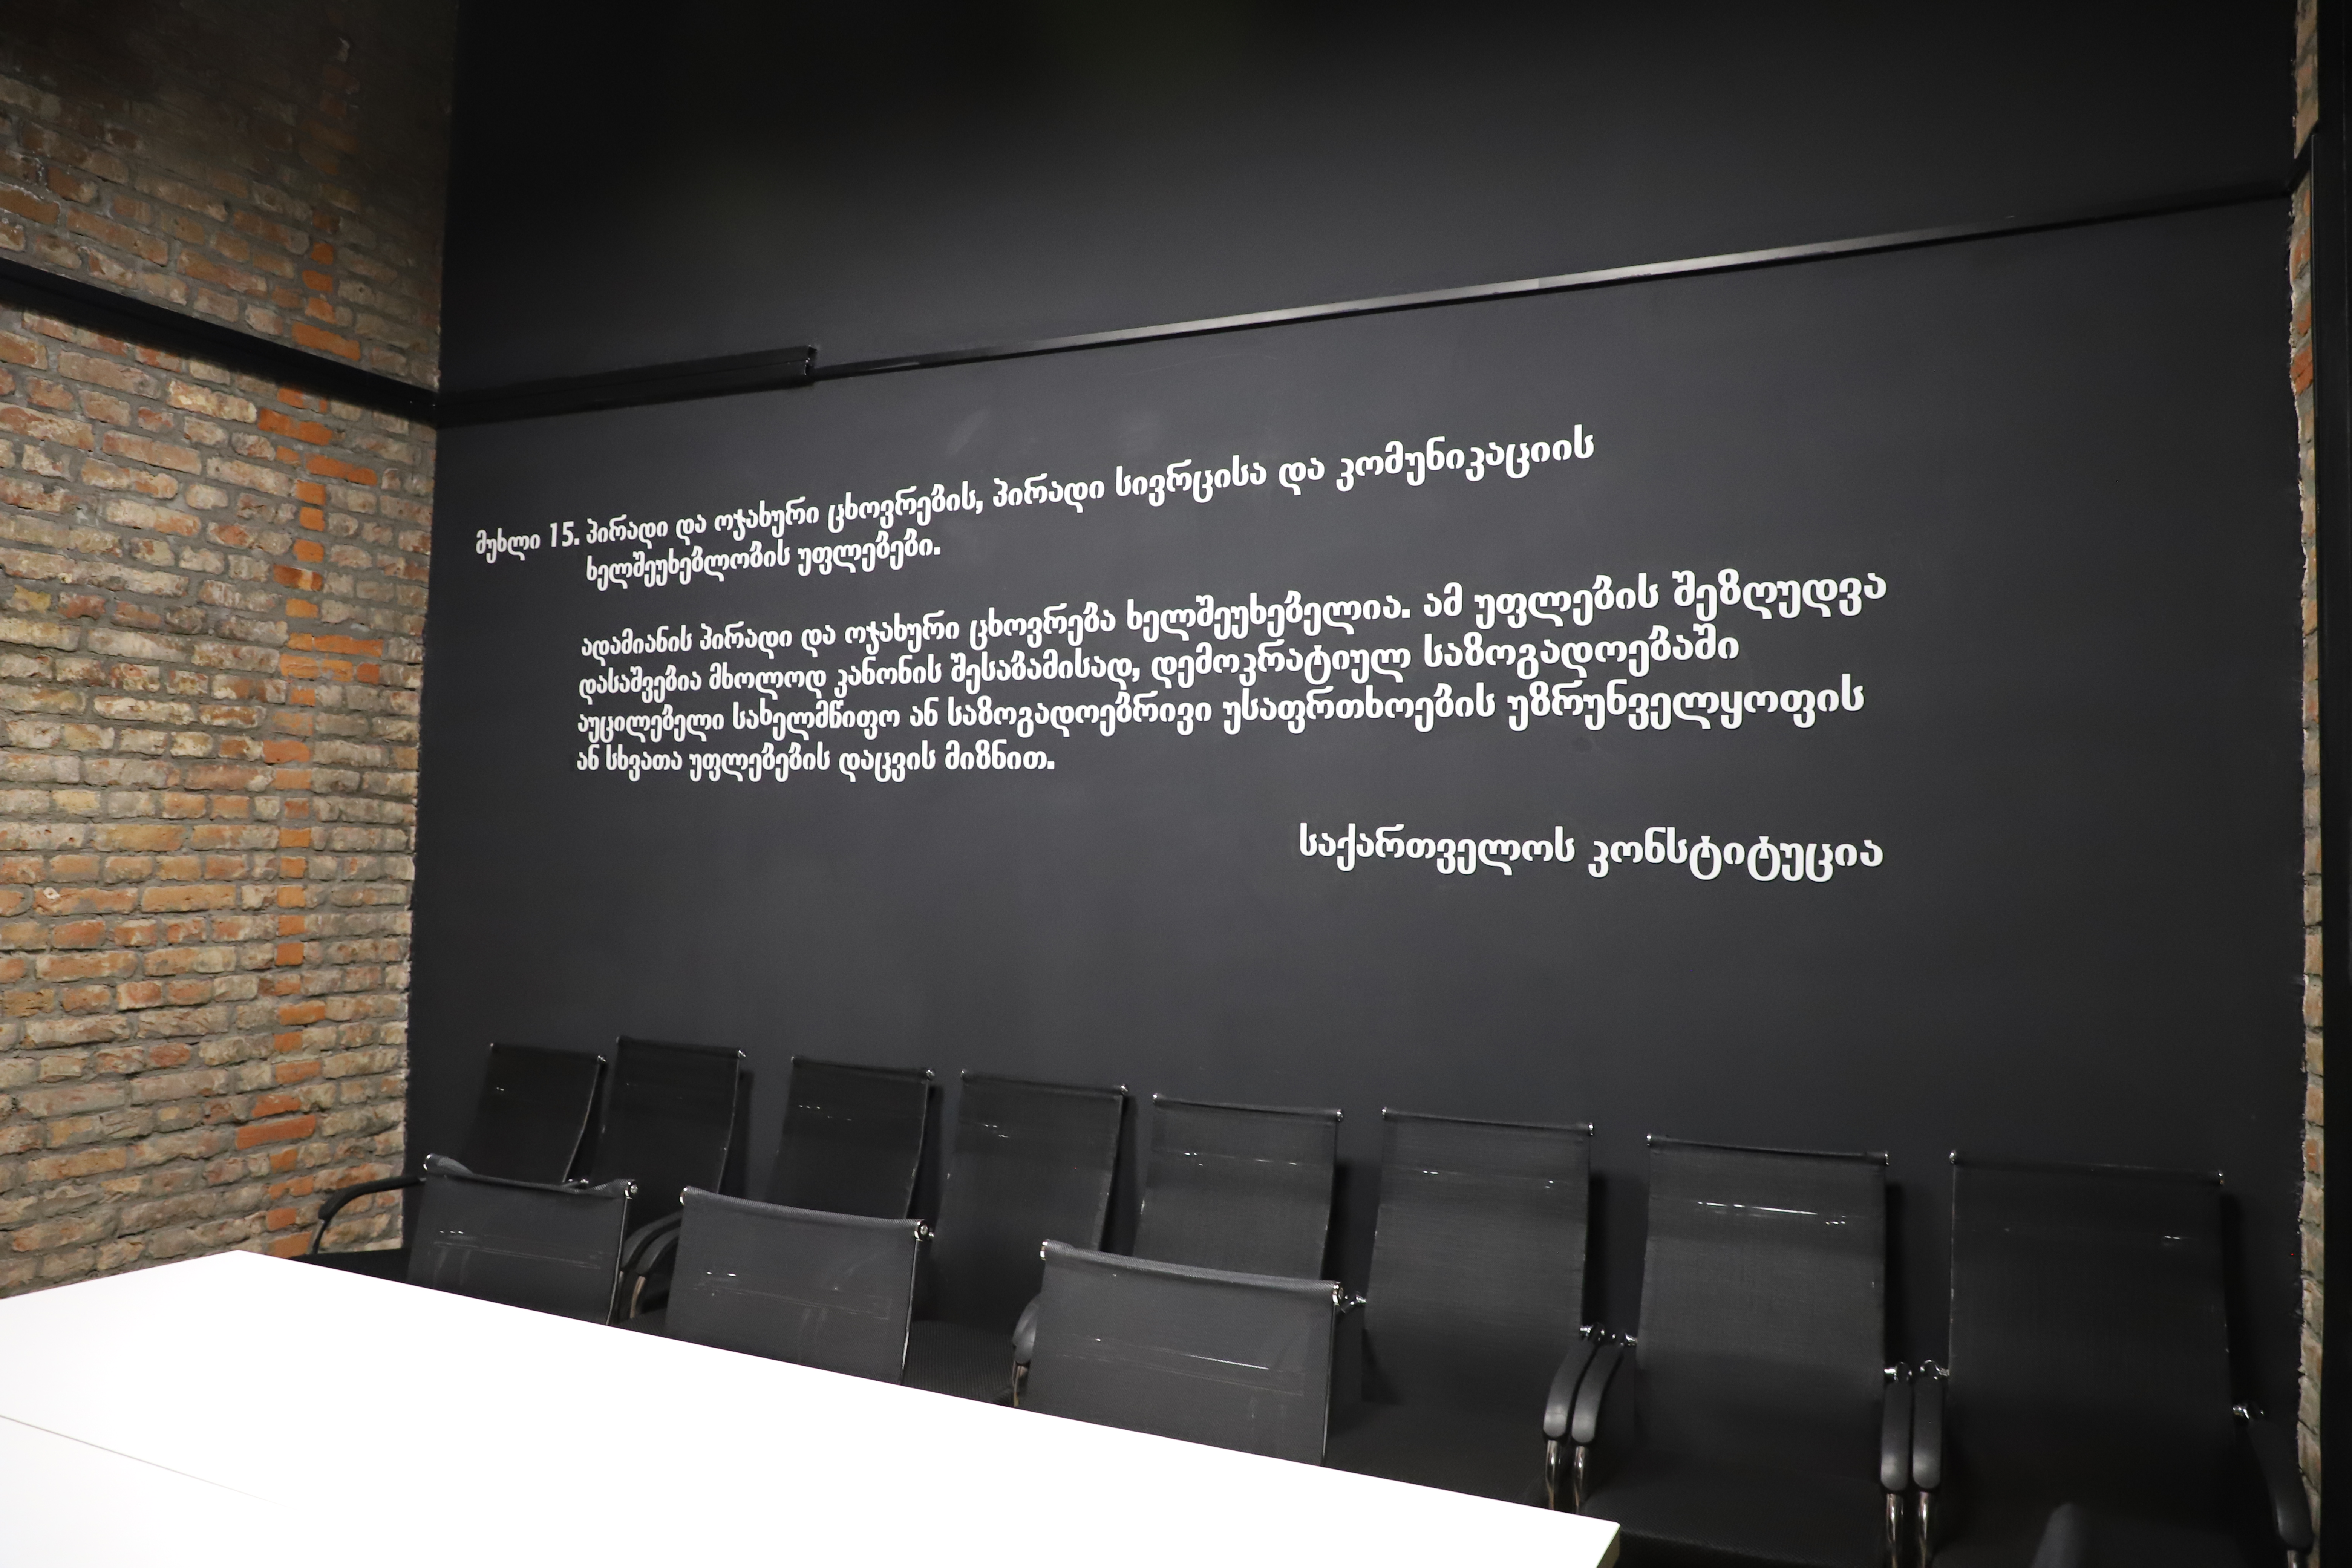 მუხლი 15. პირადი და ოჯახური ცხოვრების, პირადი სივრცისა და კომუნიკაციის
ხელშეუხებლობის უფლებები.
ადამიანის პირადი და ოჯახური ცხოვრება ხელშეუხებელია. ამ უფლების შეზღუდვა
დასაშვებია მხოლოდ კანონის შესაბამისად, დემოკრატიულ საზოგადოებაში
აუცილებელი სახელმწიფო ან საზოგადოებრივი უსაფრთხოების უზრუნველყოფის
ან სხვათა უფლებების დაცვის მიზნით.
საქართველოს კონსტიტუცია